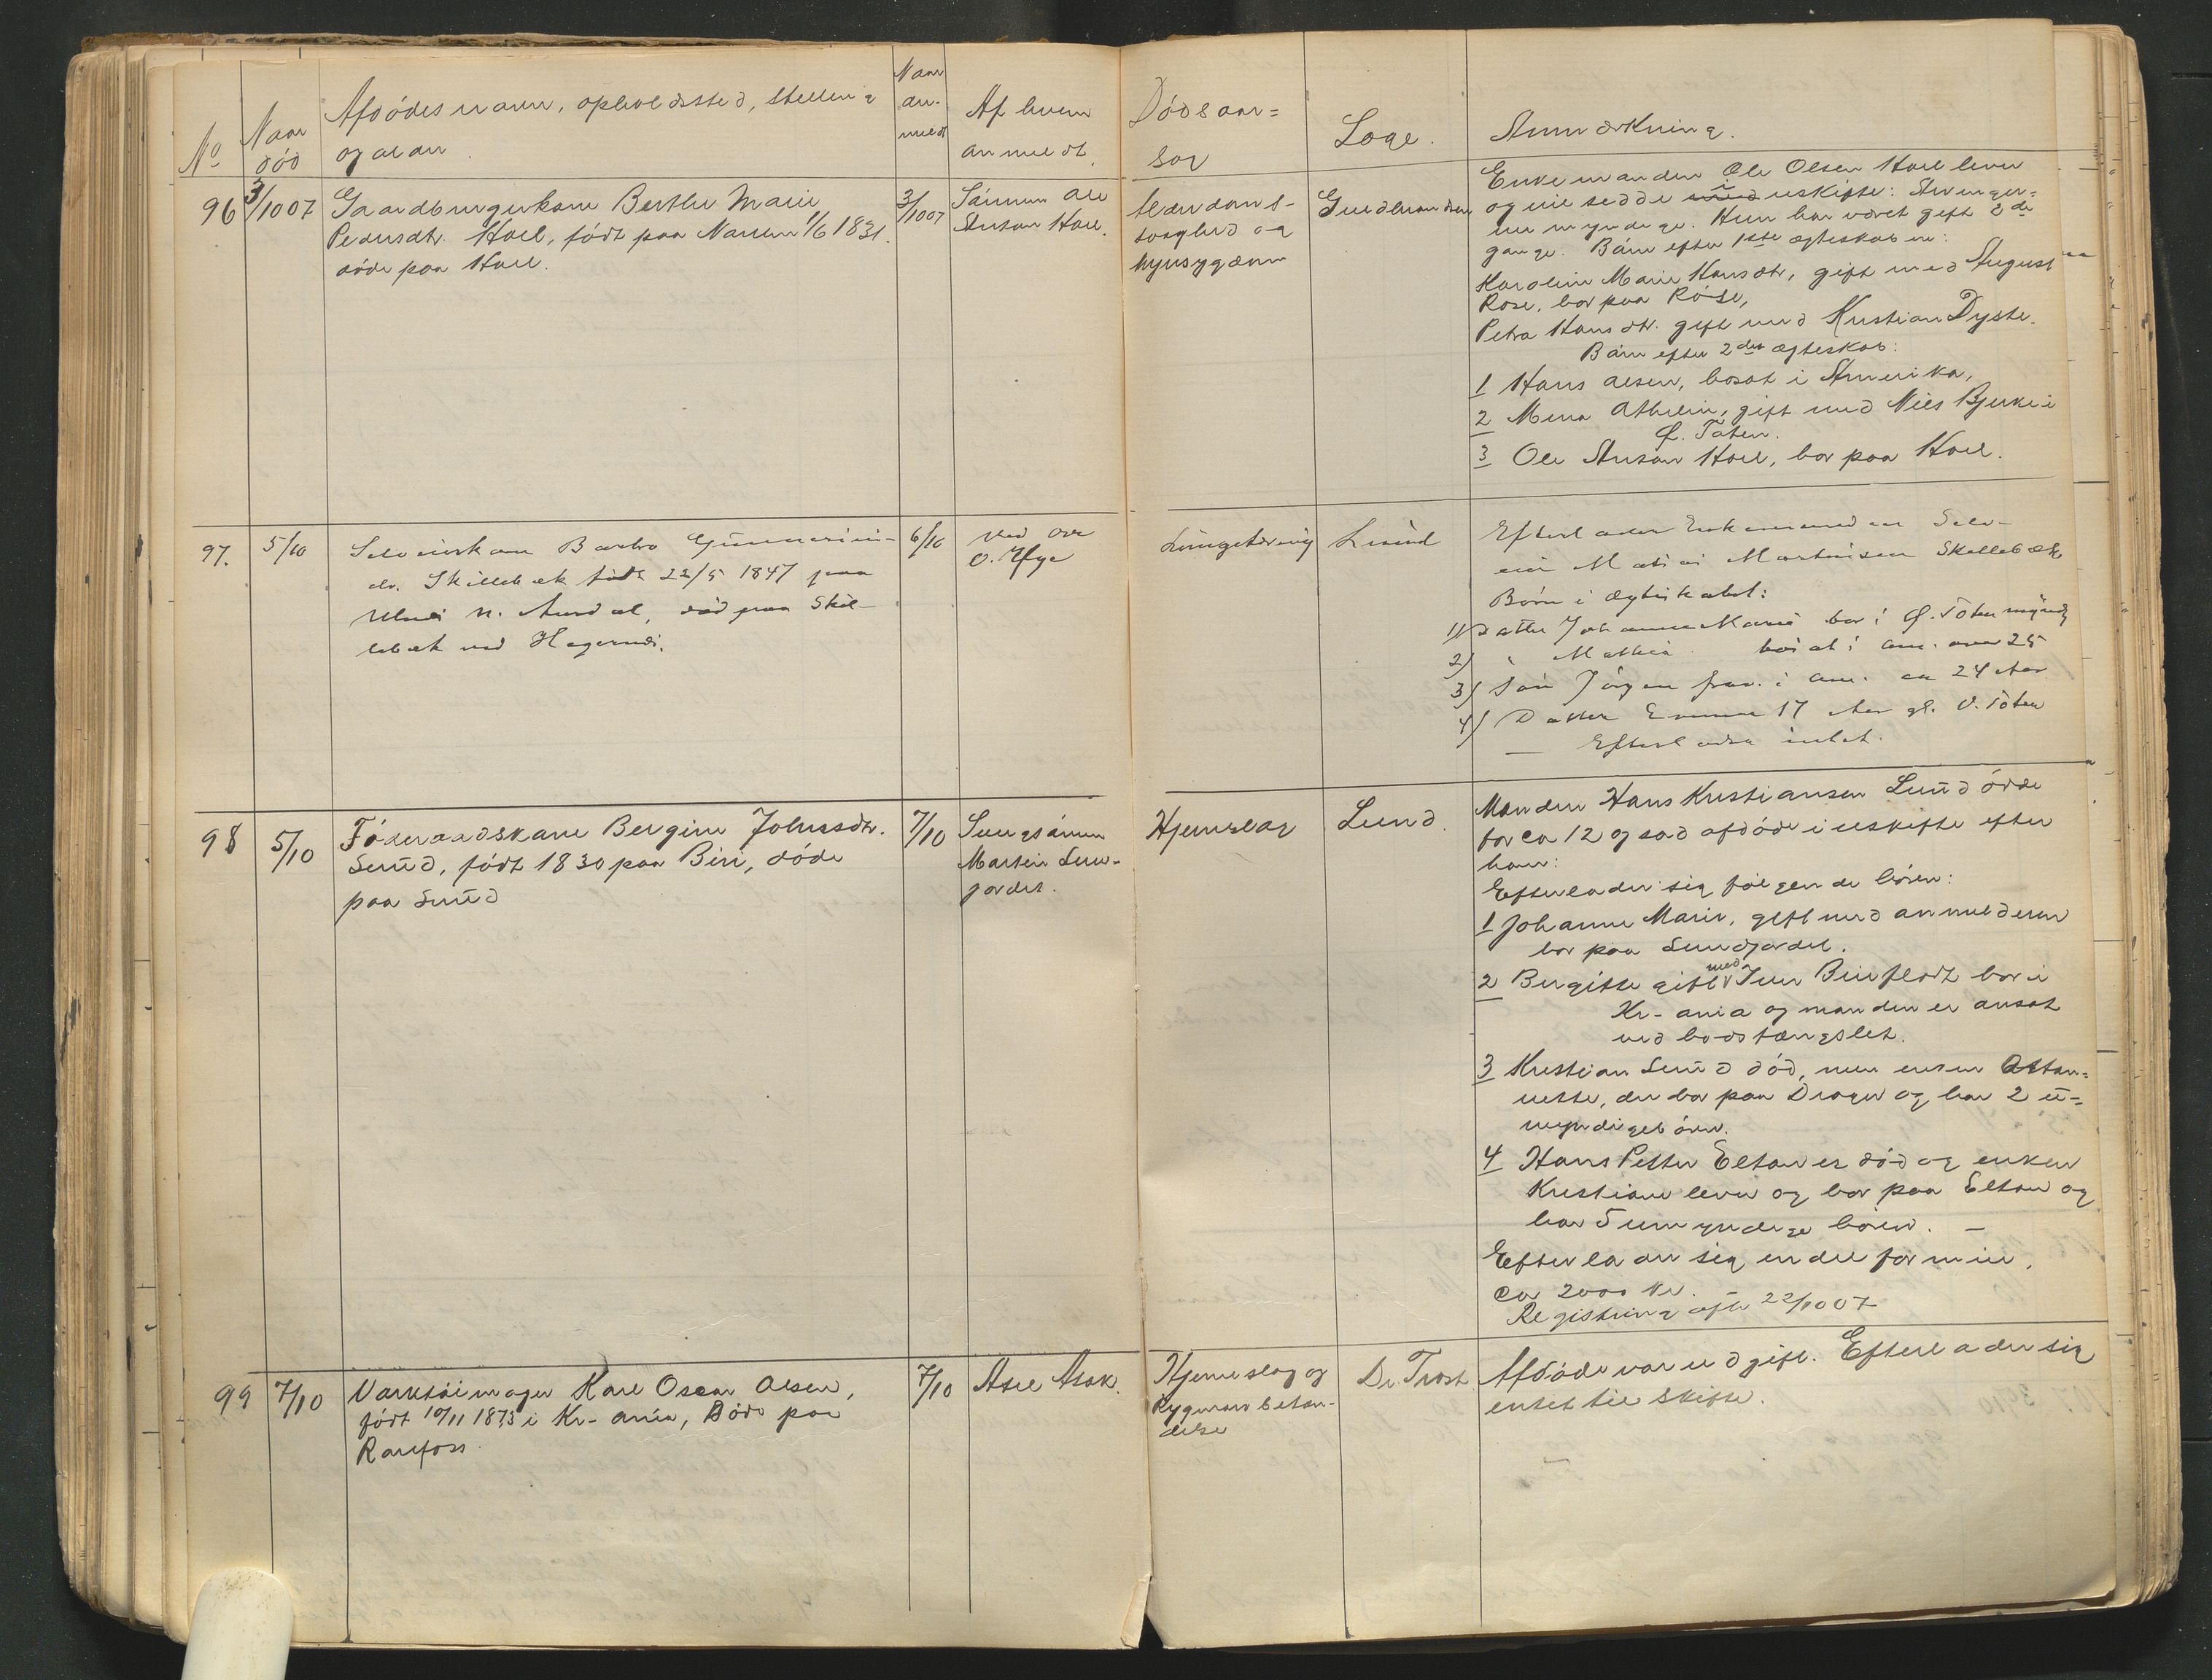 No
Naar
död
Afdödes navn, opholdssted, stilling
og alder
Naar
an-
meldt
Af hvem
anmeldt.
Dödsaar-
sag
Læge.
Anmærkning.
96
3/10 07
Gaardbrugerkone Berthe Marie
Pedersdtr. Hoel, födt paa Narum 1/6 1831.
döde paa Hoel.
3/10 07
Sönnen Ole
Anton Hoel.
Alderdoms-
slöghed og
Gulbrandsen
Enkemanden Ole Olsen Hoel lever
og vil sidde i uskifte: Arvinger-
ne myndige. Hun har været gift 2de
gange. Börn efter 1ste ægteskab er:
Karoline Marie Hansdtr, gift med August
Rose, bor paa Röise,
Petra Hansdtr. gift med Kristian Dyste.
Börn efter 2det ægteskab:
1 Hans Olsen, bosat i Amerika,
2 Mina Othilie, gift med Nils Bjerke i
Ø. Toten.
3 Ole Anton Hoel, bor paa Hoel.
97.
5/10
Selveierkone Barbro Gunnerius-
dr. Skillebæk födt 22/5 1847 paa
n. Aurdal, död paa Skil-
lebæk ved Hagernæs.
6/10
Lungetæring
Lund
Efterlader Enkemanden Selv-
eier Matias Martinsen Skillebæk
Börn i Ægteskabet:
1) Datter Johanne Marie bor i Ø. Toten myndig
2) " Mathea bosat i Am. over 25
3) Sön Jörgen frav. i Am. ca 24 Aar
4) Datter Emma 17 Aar gl. V. Toten
— Efterlader intet.
98
5/10
Föderaadskone Bergine Johnsdtr.
Lund, födt 1830 paa Biri, döde
paa Lund
7/10
Svigsönnen
Martin Lund-
jordet.
Hjerneslag
Lund.
Manden Hans Kristiansen Lund döde
for ca 12 og sad afdöde i uskifte efter
ham:
Efterlader sig fölgende börn:
1 Johanne Marie, gift med anmelderen
bor paa Lundjordet.
2 Bergitte gift med Iver Biriflodt bor i
Kr-ania og manden er ansat
ved bodsfængslet.
3 Kristian Lund död, men enken
der bor paa Drager og har 2 u-
myndige börn.
4 Hans Petter Eltan er död og enken
Kristiane lever og bor paa Eltan og
har 5 umyndige börn. —
Efterlader sig en del formue,
ca 2000 kr.
Registrering afh 22/10 07
99
7/10
Værktöimager Karl Oscar Olsen,
födt 10/11 1873 i Kr-ania, Döde paa
Raufoss.
7/10
Asle Ask.
Hjerneslag og
Rygmarvsbetæn-
delse
Dr. Trost
Afdöde var ud gift. Efterlader sig
intet til skifte.